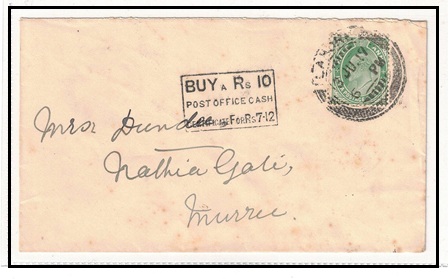 BUY A Rs 10
POST OFFICE CASH
CERTIFICATE FOR Rs 7-12
Mrs Dundee
Nathia Gali,
Murree.